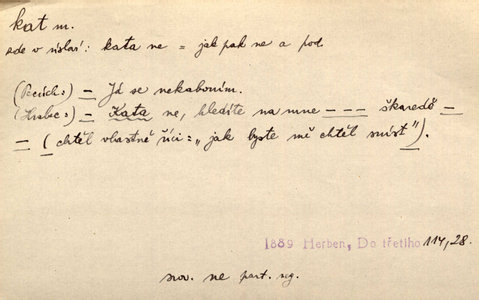 kat m.
zde v úsloví: kata ne = jak pak ne a pod.
(Pecich:) — Já se nekaboním.
(Hrabec:) — Kata ne, hledíte na mne – – – škaredě —
— (chtěl vlastně říci: „jak byste mě chtěl sníst").
1889 Herben, Do třetího 114,28.
srov. ne part. neg.